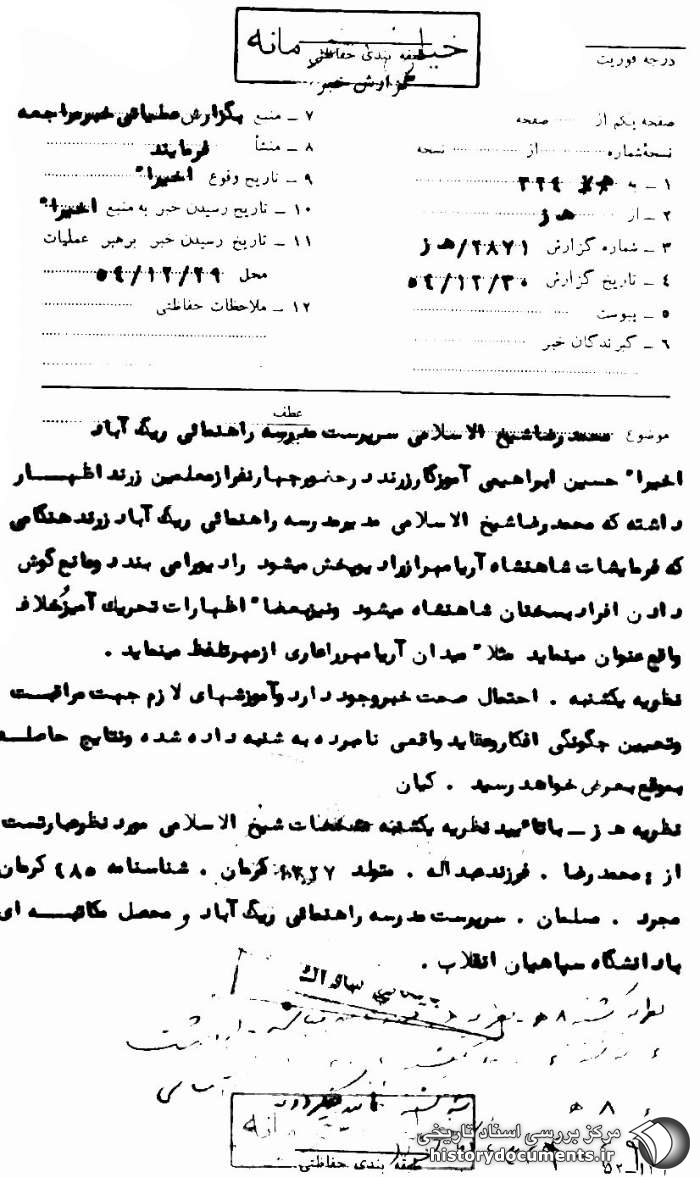 خیلی محرمانه
طبقه بندی حفاظتی
گزارش خبر
درجه فوریت
صفحه یکم از صفحه
نسخهٔ شماره از نسخه
۱ ـ به ۳۲۴
۲ ـ از ه‍ ز
۳ ـ شماره گزارش ۲۸۷۱/ه‍ ز
۴ ـ تاریخ گزارش ۵۴/۱۲/۳۰
۵ ـ پیوست
۶ ـ گیرندگان خبر
۷ ـ منبع بگزارش عملیاتی خبر مراجعه
۸ ـ منشأ فرمایند
۹ ـ تاریخ وقوع اخیرا"
۱۰ ـ تاریخ رسیدن خبر به منبع اخیرا"
۱۱ ـ تاریخ رسیدن خبر برهبر عملیات
محل ۵۴/۱۲/۲۹
۱۲ ـ ملاحظات حفاظتی
عطف
موضوع محمد رضا شیخ الاسلامی سرپرست مدرسه راهنمائی ریگ آباد
اخیرا" حسین ابراهیمی آموزگار زرند در حضور چهار نفر از معلمین زرند اظهــار
داشته که محمد رضا شیخ الاسلامی مدیر مدرسه راهنمائی ریگ آباد زرند هنگامی
که فرمایشات شاهنشاه آریامهر از رادیو پخش میشود رادیو را می بندد و مانع گوش
دادن افراد بسخنان شاهنشاه میشود و نیز بعضا" اظهارات تحریک آمیز خلاف
واقع عنوان مینماید مثلا" میدان آریامهر را عاری از مهر تلفظ مینماید .
نظریه یکشنبه . احتمال صحت خبر وجود دارد و آموزشهای لازم جهت مراقبت
و تعیین چگونگی افکار و عقاید واقعی نامبرده به شنبه داده شده و نتایج حاصلــه
بموقع بعرض خواهد رسید . کیان
نظریه ه‍ ز ـ با تائید نظریه یکشنبه مشخصات شیخ الاسلامی مورد نظر عبارتست
از : محمد رضا . فرزند عبداله . متولد ۱۳۲۷ کرمان . شناسنامه ۴۸۵ کرمان
مجرد . مسلمان . سرپرست مدرسه راهنمائی ریگ آباد و محصل مکاتبــه ای
با دانشگاه سپاهیان انقلاب .
بایگانی ساواک
نظریه سه شنبه
۸ ه‍
طبقه بندی حفاظتی
مرکز بررسی اسناد تاریخی
historydocuments.ir